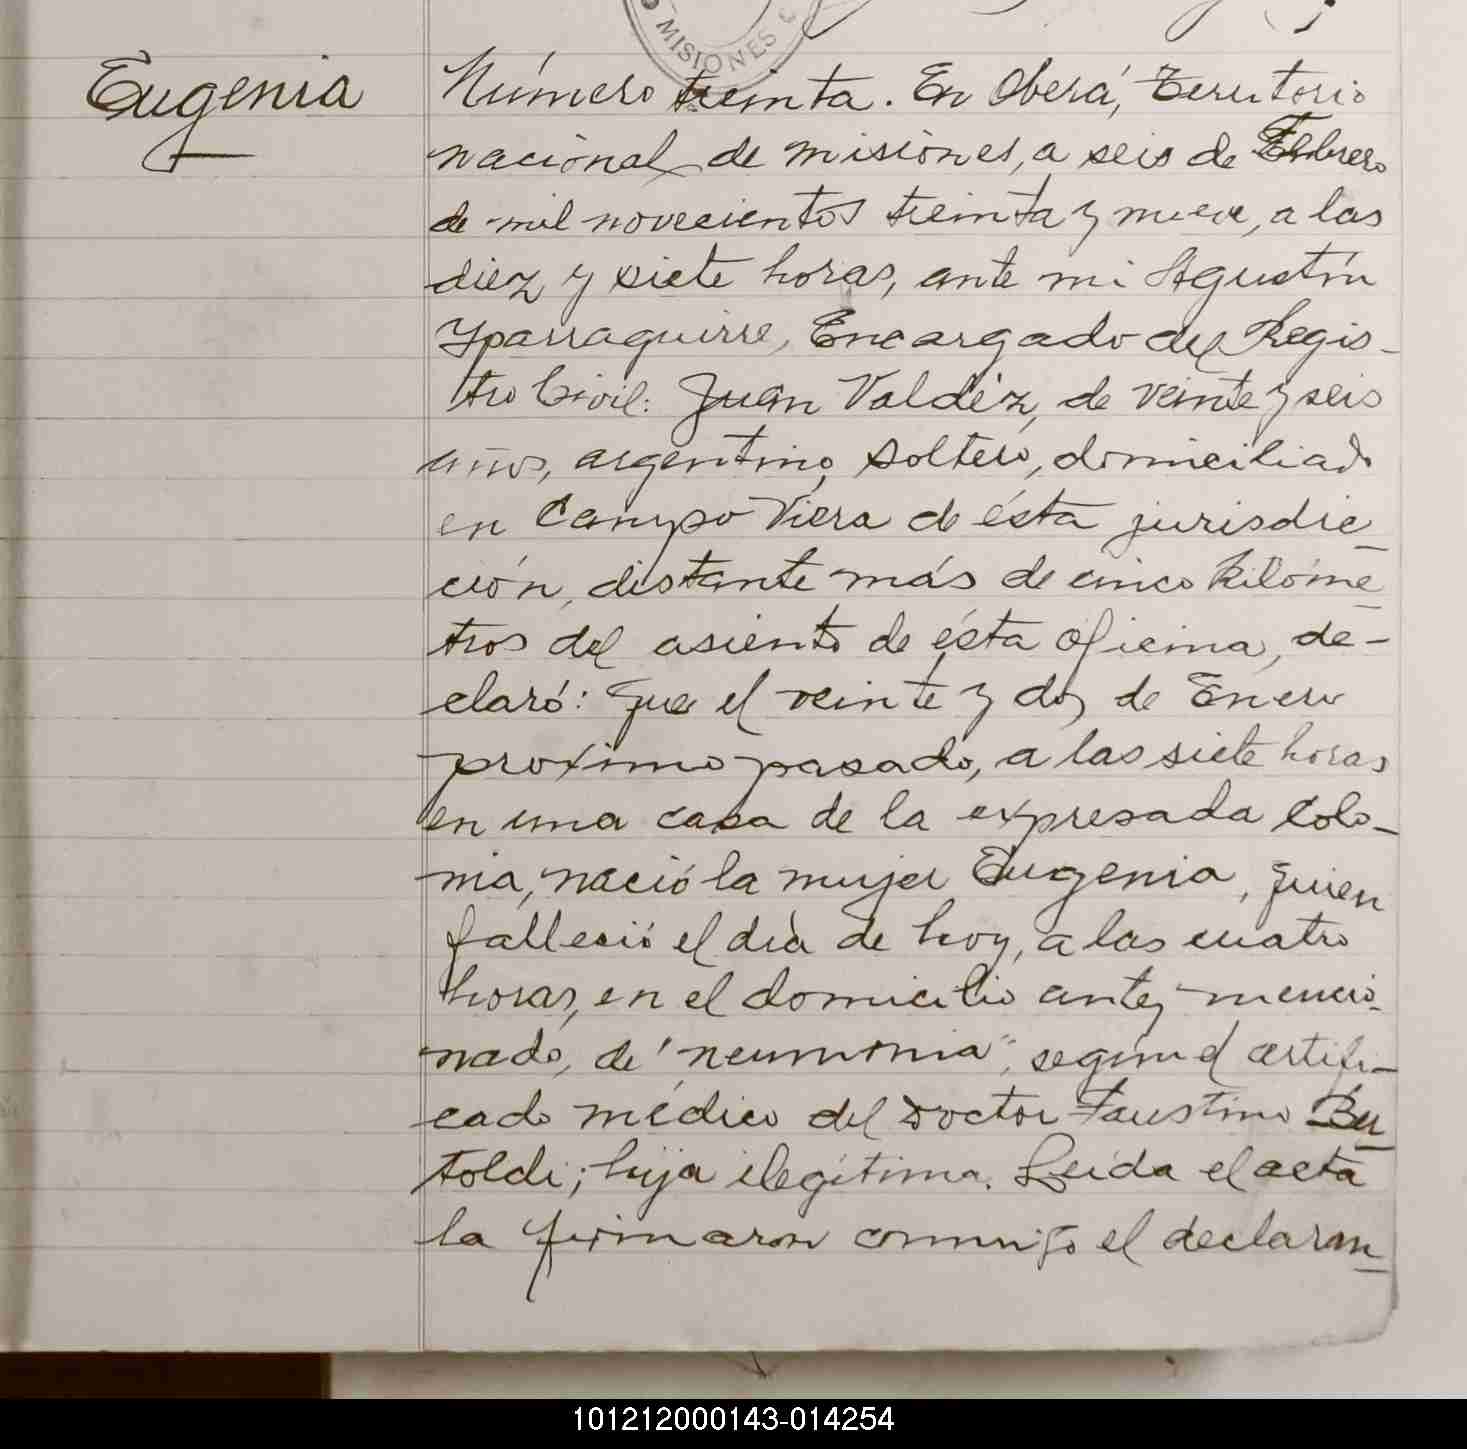 MISIONES
Eugenia
Número treinta. En Oberá, Territorio
nacional de misiones, a seis de Febrero
de mil novecientos treinta y nueve, a las
diez y siete horas, ante mi Agustín
Yparraguirre, Encargado del Regis-
tro Civil: Juan Valdéz, de veinte y seis
años, argentino, soltero, domiciliado
en Campo Viera de ésta jurisdic-
ción, distante más de cinco kilóme-
tros del asiento de ésta Oficina, de-
claró: Que el veinte y dos de Enero
próximo pasado, a las siete horas
en una casa de la expresada Colo-
nia, nació la mujer Eugenia, quien
falleció el día de hoy, a las cuatro
horas, en el domicilio antes mencio-
nado, de "neumonia", según el certifi-
cado médico del Doctor Faustino Ber-
toldi; hija ilegítima. Leída el acta
la firmaron conmigo el declaran-
101212000143-014254